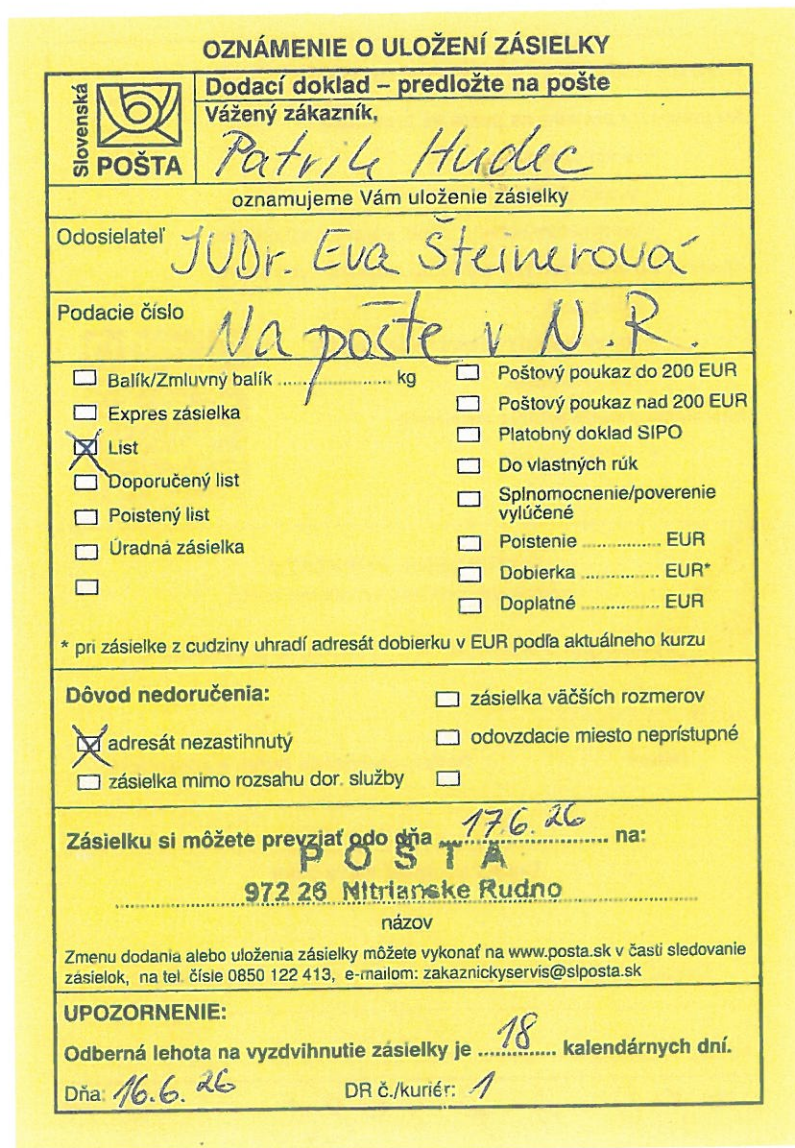 OZNÁMENIE O ULOŽENÍ ZÁSIELKY
Slovenská
POŠTA
Dodací doklad – predložte na pošte
Vážený zákazník,
Patrik Hudec
oznamujeme Vám uloženie zásielky
Odosielateľ JUDr. Eva Šteinerová
Podacie číslo Na pošte v N.R.
Balík/Zmluvný balík ........................ kg
Expres zásielka
List
Doporučený list
Poistený list
Úradná zásielka
Poštový poukaz do 200 EUR
Poštový poukaz nad 200 EUR
Platobný doklad SIPO
Do vlastných rúk
Splnomocnenie/poverenie
vylúčené
Poistenie ................ EUR
Dobierka ................ EUR*
Doplatné ................ EUR
* pri zásielke z cudziny uhradí adresát dobierku v EUR podľa aktuálneho kurzu
Dôvod nedoručenia:
adresát nezastihnutý
zásielka mimo rozsahu dor. služby
zásielka väčších rozmerov
odovzdacie miesto neprístupné
Zásielku si môžete prevziať odo dňa 17.6.26 na:
POŠTA
972 26 Nitrianske Rudno
názov
Zmenu dodania alebo uloženia zásielky môžete vykonať na www.posta.sk v časti sledovanie
zásielok, na tel. čísle 0850 122 413, e-mailom: zakaznickyservis@slposta.sk
UPOZORNENIE:
Odberná lehota na vyzdvihnutie zásielky je ..18.. kalendárnych dní.
Dňa: 16.6.26 DR č./kuriér: 1